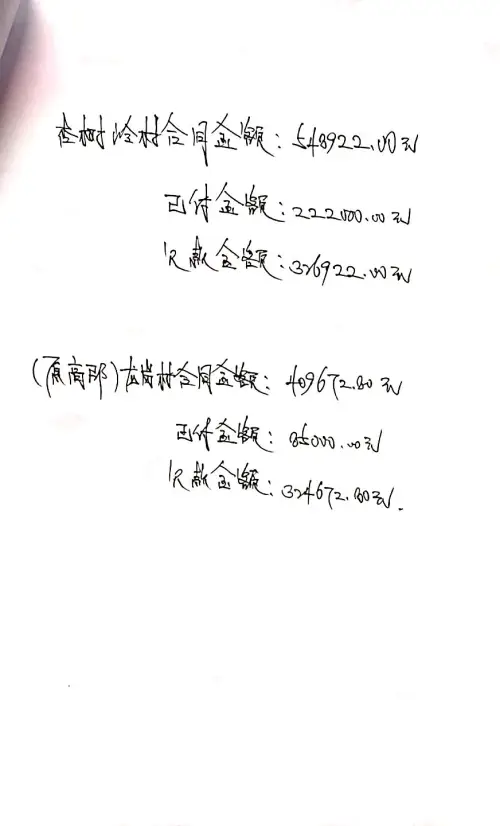 杏树岭村合同金额：548922.00元
已付金额：222000.00元
欠款金额：326922.00元
(原高郎)龙岗村合同金额：409672.80元
已付金额：85000.00元
欠款金额：324672.80元.